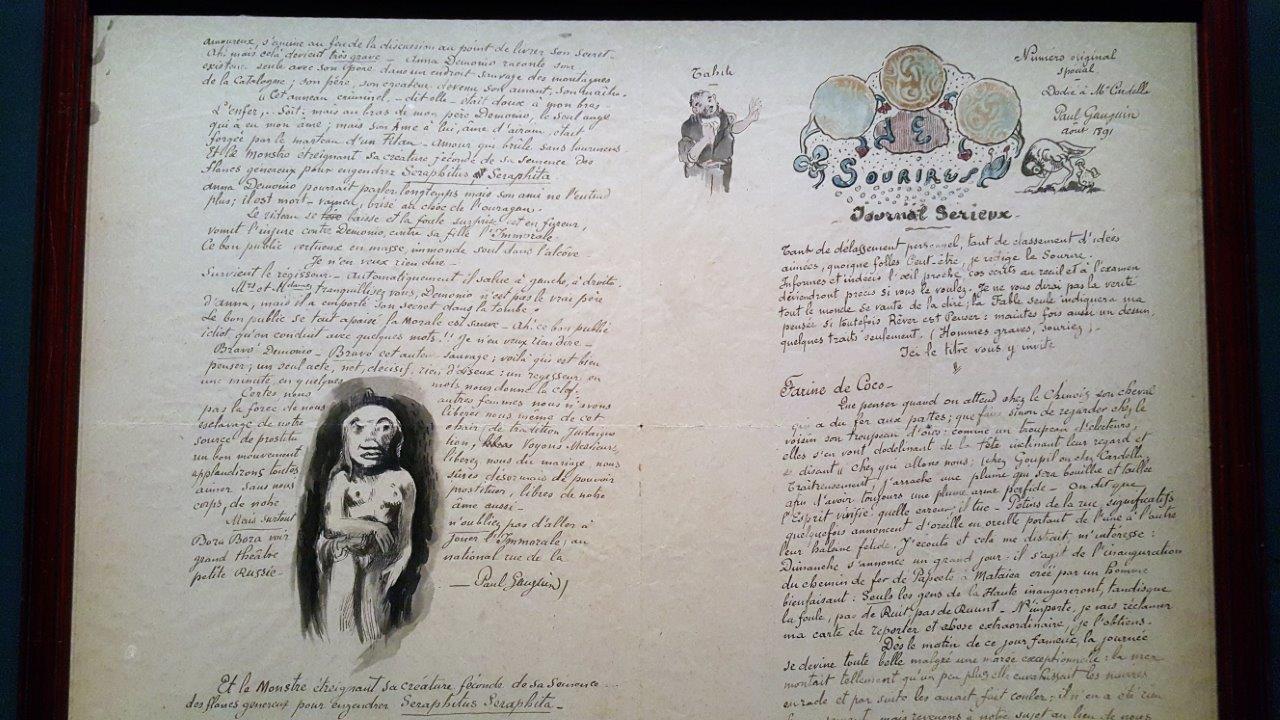 amoureux, s'anime au feu de la discussion au point de livrer son secret.
Ah! mais cela devient très grave — Anna Demonio raconte son
existence seule avec son père dans un endroit sauvage des montagnes
de la Catalogne; son père, son createur devenu son amant, son maitre.
"Cet anneau criminel — dit elle — était doux à mon bras
L'Enfer,.. Soit: mais au bras de mon père Demonio, le seul ange
qui a eu mon âme; mais son âme à lui, ame d'airain, était
forgée par le marteau d'un Titan — amour qui brûle sans
Et le Monstre étreignant sa créature, féconde de sa semence des
flancs genereux pour engendrer Seraphitus Seraphita
Anna Demonio pourrait parler longtemps mais son ami ne l'entend
plus; il est mort — vaincu, brisé au choc de l'ouragan.
Le rideau se baisse et la foule surprise est en fureur,
vomit l'injure contre Demonio, contre sa fille l'Immorale.
Ce bon public vertueux en masse, immonde seul dans l'alcôve
Je n'en veux rien dire —
Survient le régisseur — Automatiquement il salue à gauche, à droite.
Mrs et Mdames tranquillisez vous, Demonio n'est pas le vrai père
d'anna, mais il a emporté son secret dans la tombe.
Le bon public se tait apaisé la Morale est sauve — Ah. ce bon public
idiot qu'on conduit avec quelques mots!! Je n'en veux rien dire —
Bravo Demonio — Bravo cet auteur sauvage; voilà qui est bien
penser; un seul acte, net, décisif, rien d'oiseux: un régisseur en
une minute, en quelques mots nous donne la clef.
Certes nous autres femmes nous n'avons
pas la force de nous libérer nous même de cet
esclavage de notre chair, de tradition Judaique
source de prostitu tion, Voyons Messieurs
un bon mouvement liberez nous du mariage, nous
applaudirons toutes sûres désormais de pouvoir
aimer sans nous prostituer, libres de notre
corps, de notre ame aussi —
Mais surtout n'oubliez pas d'aller à
Bora Bora voir jouer l'Immorale, au
grand théâtre national rue de la
petite Russie —
— Paul Gauguin
Et le Monstre étreignant sa créature féconde de sa semence
des flancs genereux pour engendrer Seraphitus Seraphita —
Tahiti
LE
SOURIRE
Journal Serieux
Numéro original
special.
Dedié à Mr Cardella
Paul Gauguin
août 1891
Tant de délassement personnel, tant de classement d'idées
aimées, quoique folles peut-être, je rédige le Sourire.
Informes et indécis l'œil proche, ces écrits au recul et à l'examen
deviendront précis si vous le voulez. Je ne vous dirai pas la verité
tout le monde se vante de la dire, la Fable seule indiquera ma
penser si toutefois Rêver est Penser: maintes fois aussi un dessin,
quelques traits seulement. (Hommes graves, souriez,
Ici le titre vous y invite
Farine de Coco —
Que penser quand on attend chez le Chinois son cheval
qui a du fer aux pattes; que faire sinon de regarder chez le
voisin son troupeau d'oies: comme un troupeau d'electeurs,
elles s'en vont dodelinant de la tête inclinant leur regard et
disant "chez qui allons nous; chez Goupil ou chez Cardella.
Traitreusement j'arrache une plume qui sera bouillie et taillée
afin d'avoir toujours une plume arme perfide — On dit que
l'Esprit vivifie: quelle erreur, il tue — Potins de la rue significatifs
quelquefois annoncent d'oreille en oreille portant de l'une à l'autre
leur haleine fetide. J'écoute et cela me distrait, m'intéresse:
Dimanche s'annonce un grand jour: il s'agit de l'inauguration
du chemin de fer de Papeete à Mataiea créé par un homme
bienfaisant: Seuls les gens de la Haute inaugureront, tandisque
la foule, pas de Ruit pas de Ruunt — N'importe, je vais réclamer
ma carte de reporter et chose extraordinaire, je l'obtiens.
Dès le matin de ce jour fameux, la journée
se devine toute belle malgré une marée exceptionnelle: la mer
montait tellement qu'un peu plus elle envahissait les navires
en rade et par suite les aurait fait couler: il n'en a été rien
mais revenons à notre sujet au lieu de nous